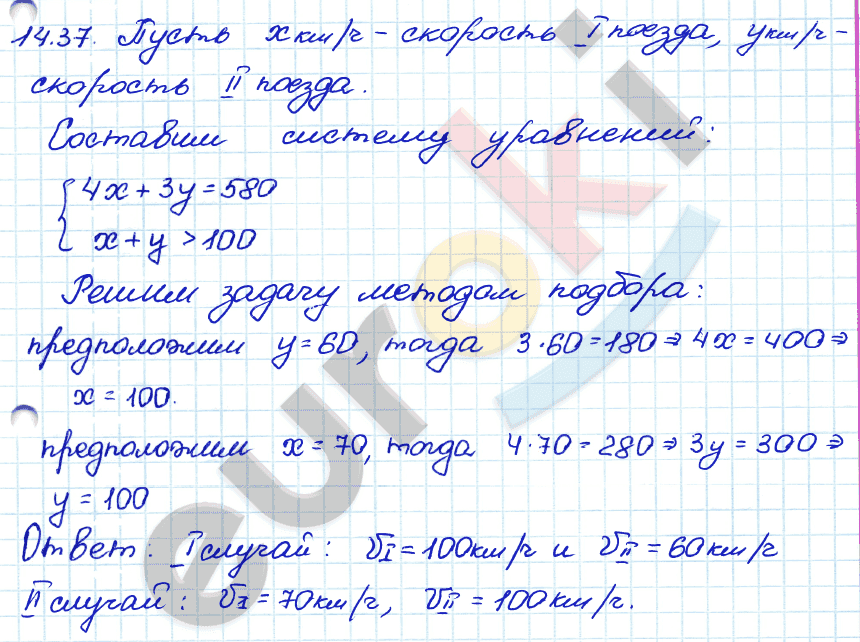 14.37. Пусть x км/ч – скорость I поезда, y км/ч –
скорость II поезда.
Составим систему уравнений:
{ 4x + 3y = 580
x + y > 100
Решим задачу методом подбора:
предположим y = 60, тогда 3·60 = 180 ⇒ 4x = 400 ⇒
x = 100.
предположим x = 70, тогда 4·70 = 280 ⇒ 3y = 300 ⇒
y = 100
Ответ: I случай: VI = 100 км/ч и VII = 60 км/ч
II случай: VI = 70 км/ч, VII = 100 км/ч.
euroki